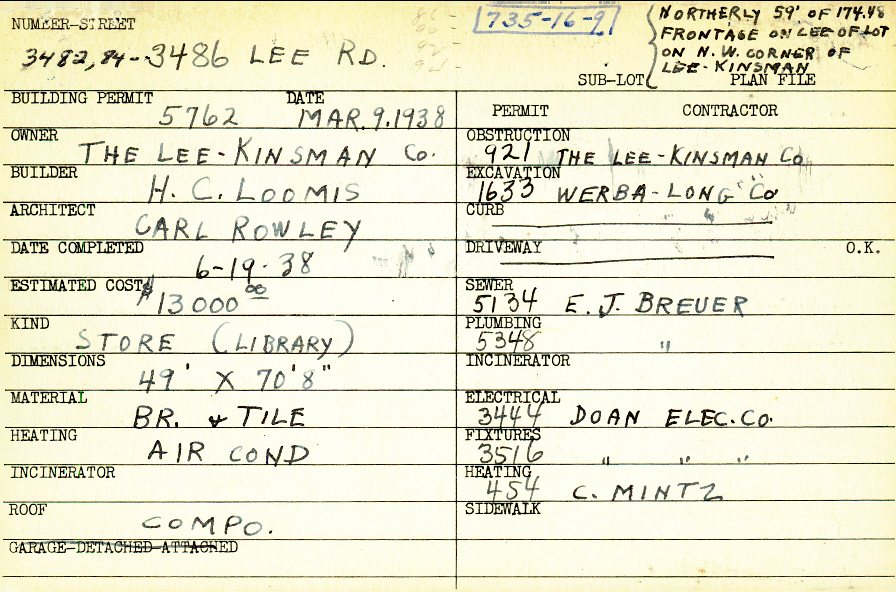 NUMBER-STREET
3482,84--3486 LEE RD.
735-16-9
NORTHERLY 59' OF 174.48
FRONTAGE ON LEE OF LOT
ON N.W. CORNER OF
LEE-KINSMAN
SUB-LOT PLAN FILE
BUILDING PERMIT DATE
5762 MAR.9.1938
OWNER
THE LEE-KINSMAN Co.
BUILDER
H. C. LOOMIS
ARCHITECT
CARL ROWLEY
DATE COMPLETED
6-19-38
ESTIMATED COST
$13000 00
KIND
STORE (LIBRARY)
DIMENSIONS
49' X 70'8"
MATERIAL
BR. & TILE
HEATING
AIR COND
INCINERATOR
ROOF
COMPO.
GARAGE-DETACHED-ATTACHED
PERMIT CONTRACTOR
OBSTRUCTION
921 THE LEE-KINSMAN Co
EXCAVATION
1633 WERBA-LONG Co
CURB
DRIVEWAY O.K.
SEWER
5134 E. J. BREUER
PLUMBING
5348 "
INCINERATOR
ELECTRICAL
3444 DOAN ELEC.CO.
FIXTURES
3516 " " "
HEATING
454 C. MINTZ
SIDEWALK